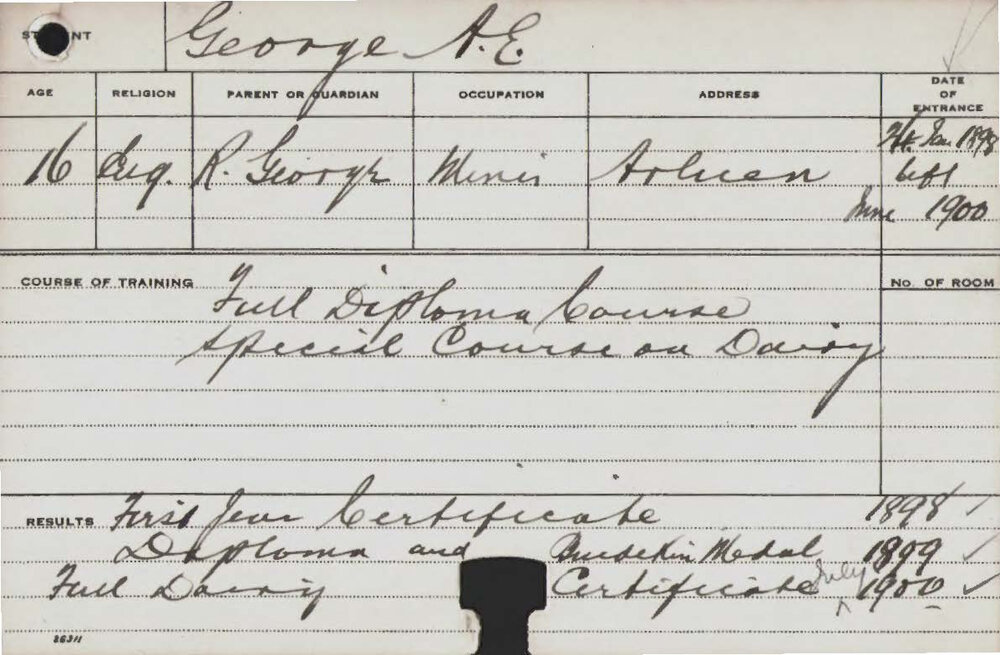 STUDENT George A.E.
AGE RELIGION PARENT OR GUARDIAN OCCUPATION ADDRESS DATE OF ENTRANCE
16 Eng. R. George Miner Araluen Jan 1898
left
June 1900
COURSE OF TRAINING Full Diploma Course No. OF ROOM
Special Course on Dairy
RESULTS First Year Certificate 1898 ✓
Diploma and Burdekin Medal 1899 ✓
Full Dairy Certificate July 1900 ✓
86311